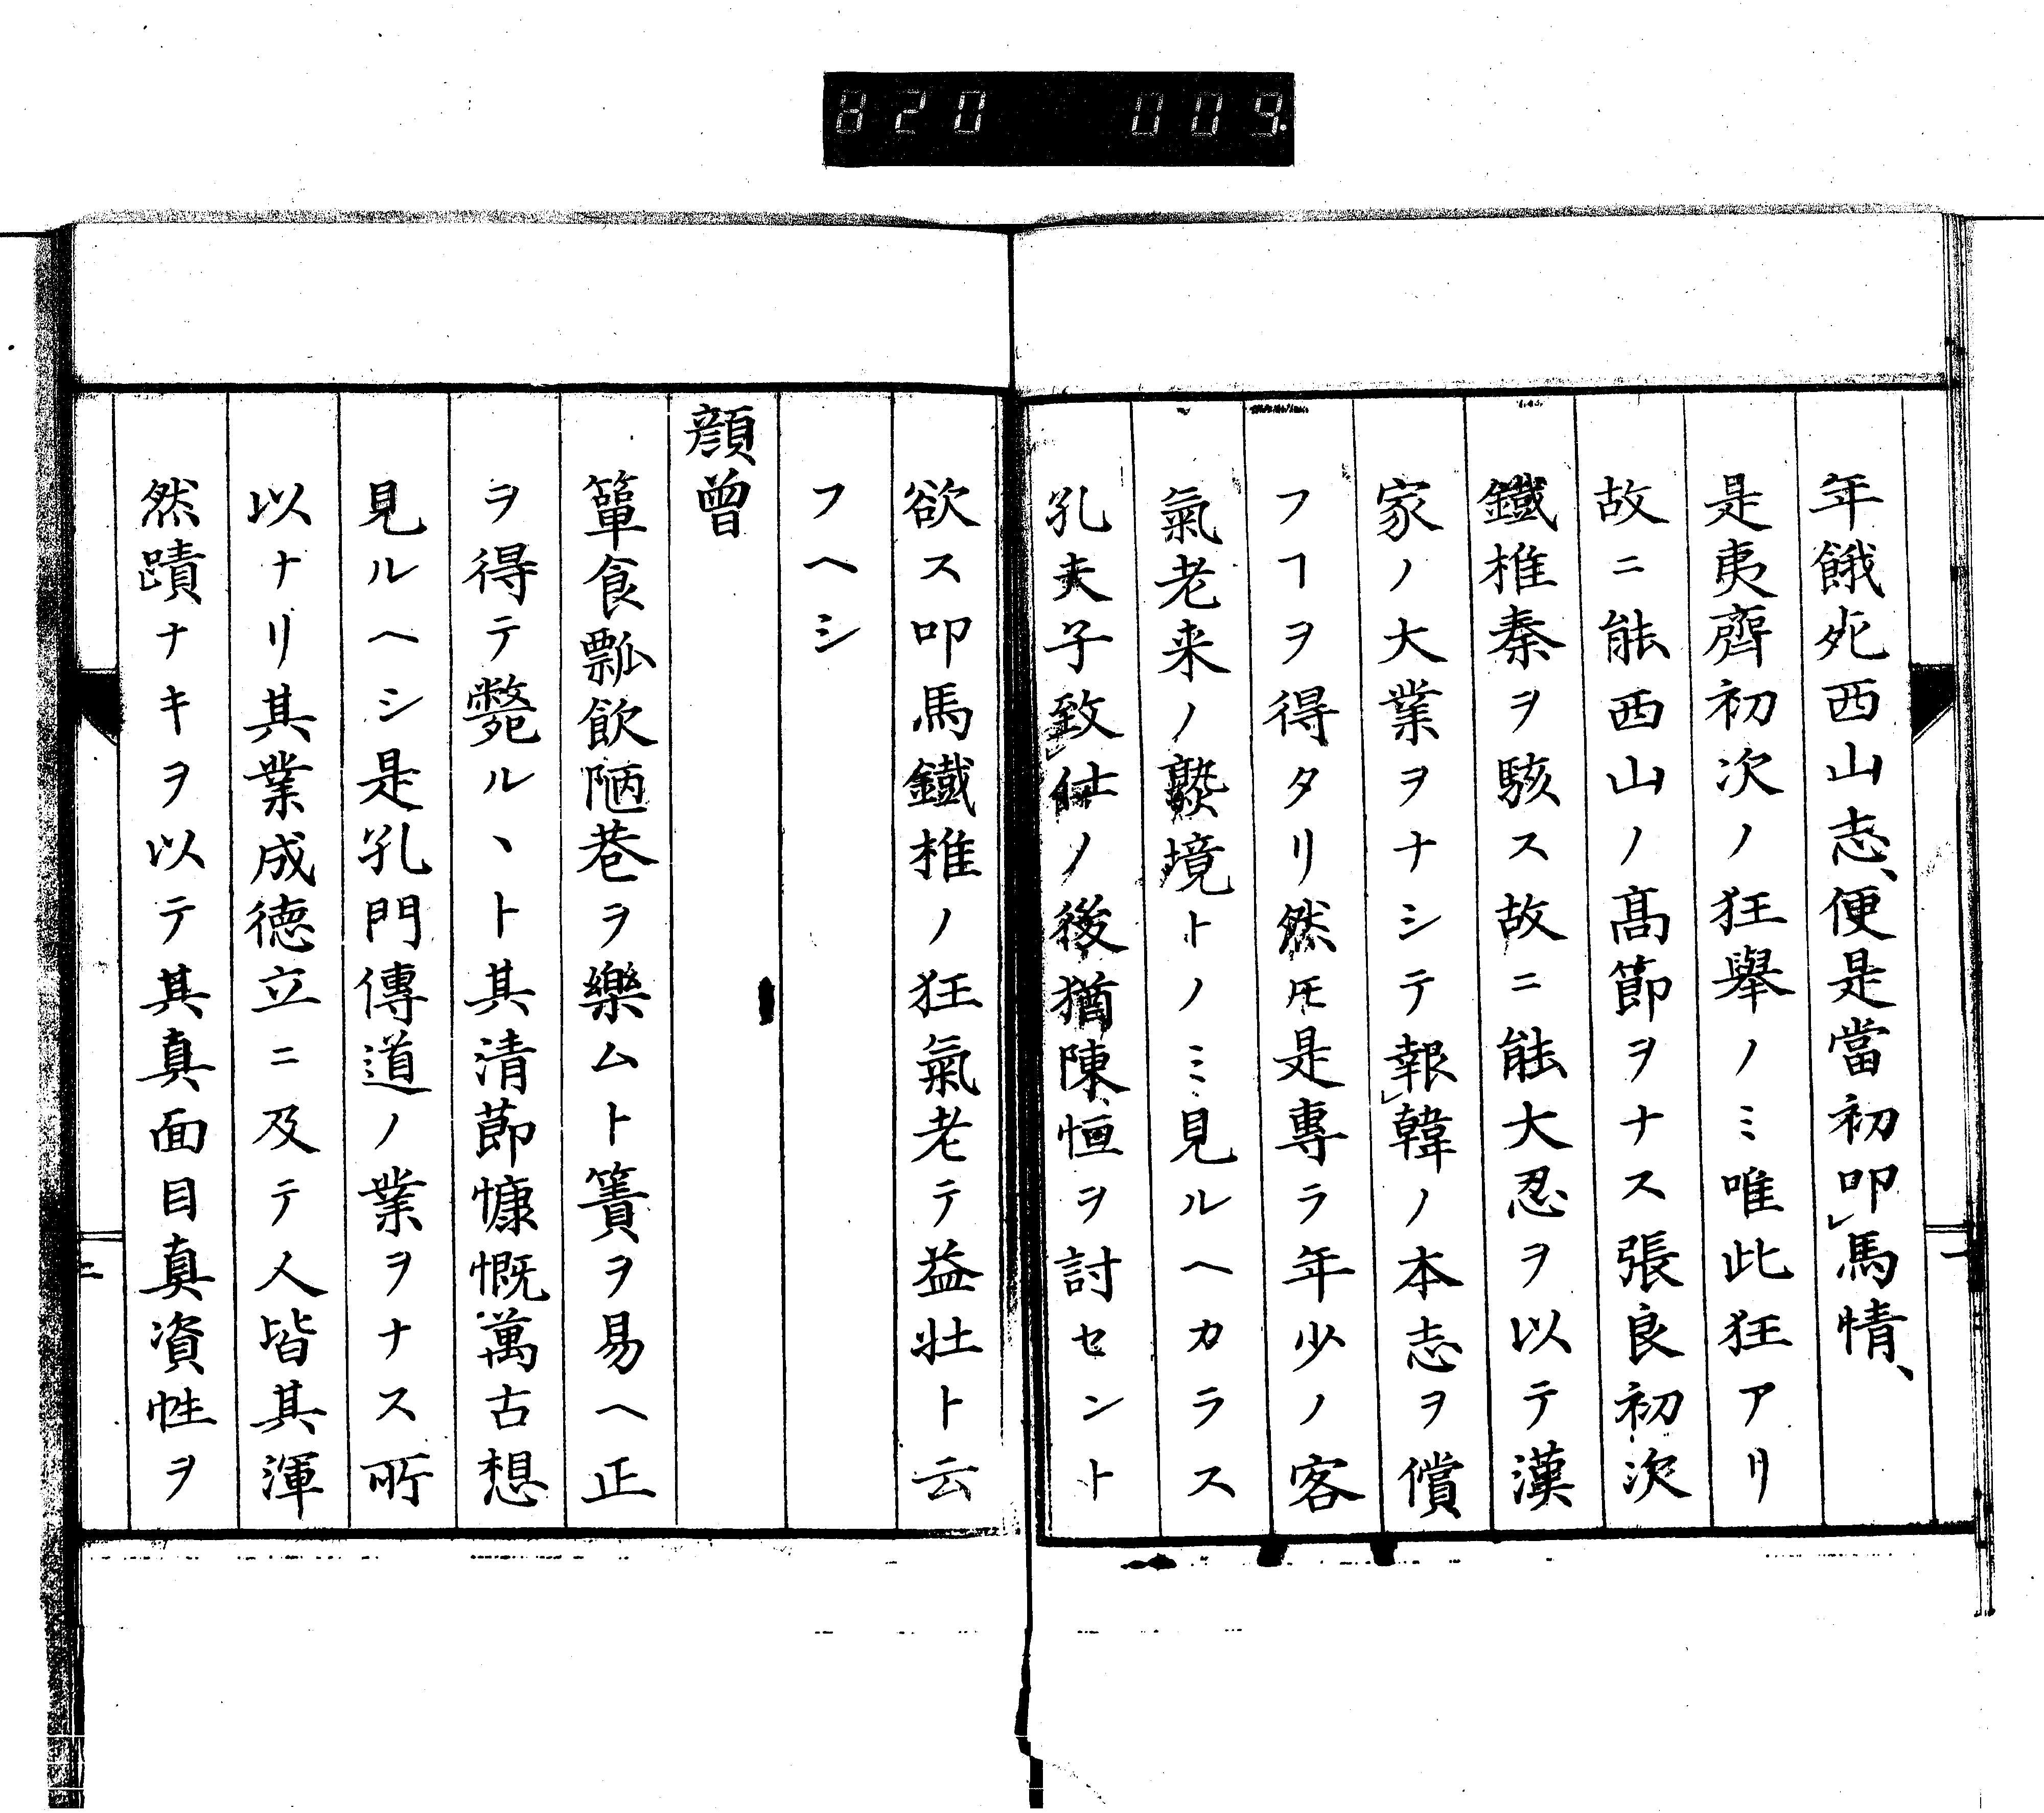 820 009.
年餓死西山志、便是當初叩馬情、
是夷齊初次ノ狂擧ノミ唯此狂アリ
故ニ能西山ノ高節ヲナス張良初次
鐵椎秦ヲ駭ス故ニ能大忍ヲ以テ漢
家ノ大業ヲナシテ報韓ノ本志ヲ償
フヿヲ得タリ然𪜈是專ラ年少ノ客
氣老来ノ𤍨境トノミ見ルヘカラス
孔夫子致仕ノ後猶陳恒ヲ討セント
一
欲ス叩馬鐵椎ノ狂氣老テ益壮ト云
フヘシ
顔曽
簞食瓢飮陋巷ヲ樂ムト簀ヲ易ヘ正
ヲ得テ斃ルヽト其清節慷慨萬古想
見ルヘシ是孔門傳道ノ業ヲナス所
以ナリ其業成徳立ニ及テ人皆其渾
然蹟ナキヲ以テ其真面目真資性ヲ
二